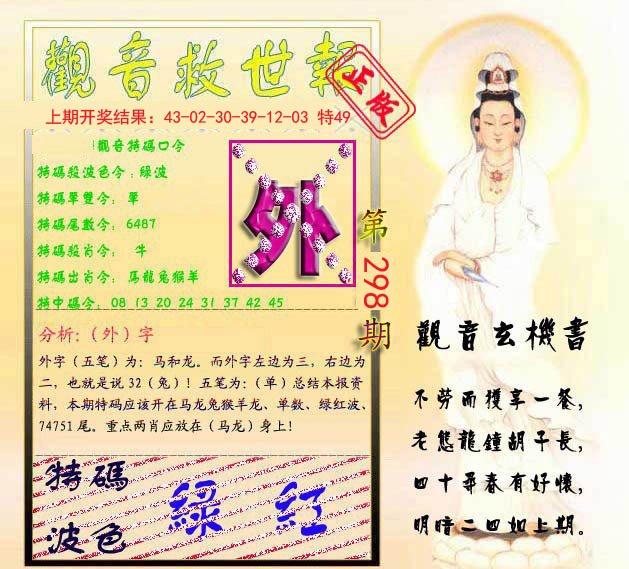 觀音救世報
正版
上期开奖结果：43-02-30-39-12-03 特49
觀音特碼口令
特碼殺波色令：綠波
特碼單雙令： 單
特碼尾數令： 6487
特碼殺肖令： 牛
特碼出肖令： 馬龍兔猴羊
特中碼令： 08 13 20 24 31 37 42 45
外
第298期
分析：（外）字
外字（五笔）为：马和龙。而外字左边为三，右边为
二，也就是说32（兔）！五笔为：（单）总结本报资
料，本期特码应该开在马龙兔猴羊龙、单数、绿红波、
74751尾。重点两肖应放在（马龙）身上！
特碼
波色
綠 紅
觀音玄機書
不勞而獲享一餐，
老態龍鐘胡子長，
四十尋春有好懷，
明暗二四如上期。